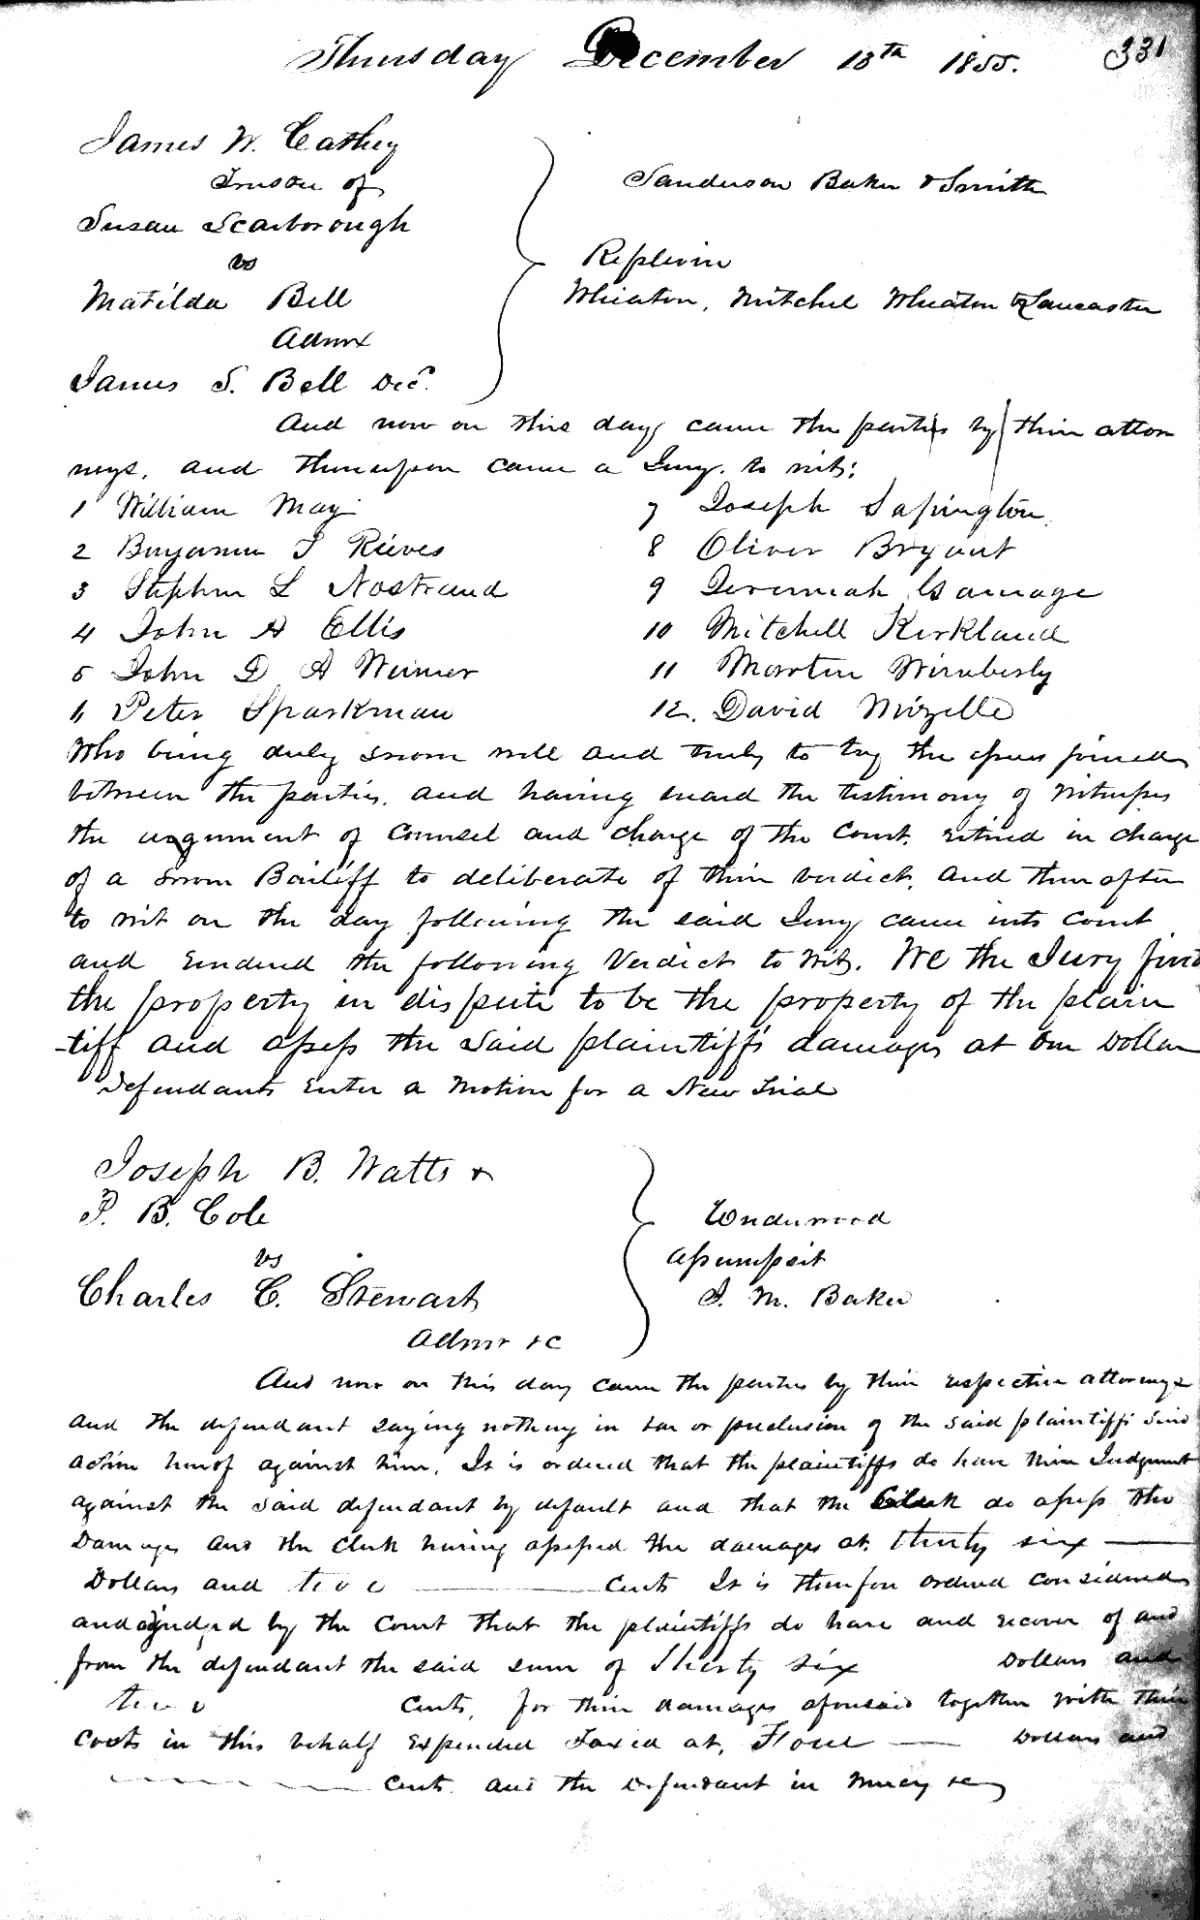 Thursday December 13th 1855. 331
James W. Cathey
Trustee of
Susan Scarborough
vs
Matilda Bell
Admx
James S. Bell Decd.
Sanderson Baker & Smith
Replevin
Wheaton, Mitchel Wheaton & Lancaster
And now on this day came the parties by their attor
neys, and thereupon came a Jury. to wit;
1 William May
2 Benjamin F Rieves
3 Stephen L Nostrand
4 John A Ellis
5 John D A Weimer
6 Peter Sparkman
7 Joseph Sapington
8 Oliver Bryant
9 Jeremiah Gamage
10 Mitchell Kirkland
11 Martin Wimberly
12. David Mizelle
Who being duly sworn well and truly to try the issues joined
between the parties, and having heard the testimony of witnesses
the argument of Counsel and charge of the Court. retired in charge
of a sworn Bailiff to deliberate of their verdict, and thereafter
to wit on the day following the said Jury came into Court
and rendered the following Verdict to wit. We the Jury find
the property in dispute to be the property of the plain
-tiff and assess the said plaintiff's damages at One Dollar
Defendants Enter a Motion for a New Trial
Joseph B. Watts &
P. B. Cole
vs
Charles C. Stewart
Admr &c
Underwood
Assumpsit
J. M. Baker
And now on this day came the parties by their respective attorneys
and the defendant saying nothing in bar or preclusion of the said plaintiffs said
action hereof against him, It is ordered that the plaintiffs do have their Judgment
against the said defendant by default and that the Clerk do assess the
Damages and the Clerk having assessed the damages at, thirty six
Dollars and two cents It is therefore ordered considered
and adjudged by the Court that the plaintiffs do have and recover of and
from the defendant the said sum of Thirty six Dollars and
two Cents, for their damages aforesaid together with their
costs in this behalf Expended Taxed at, Four Dollars and
Cents. and the Defendant in Mercy &c